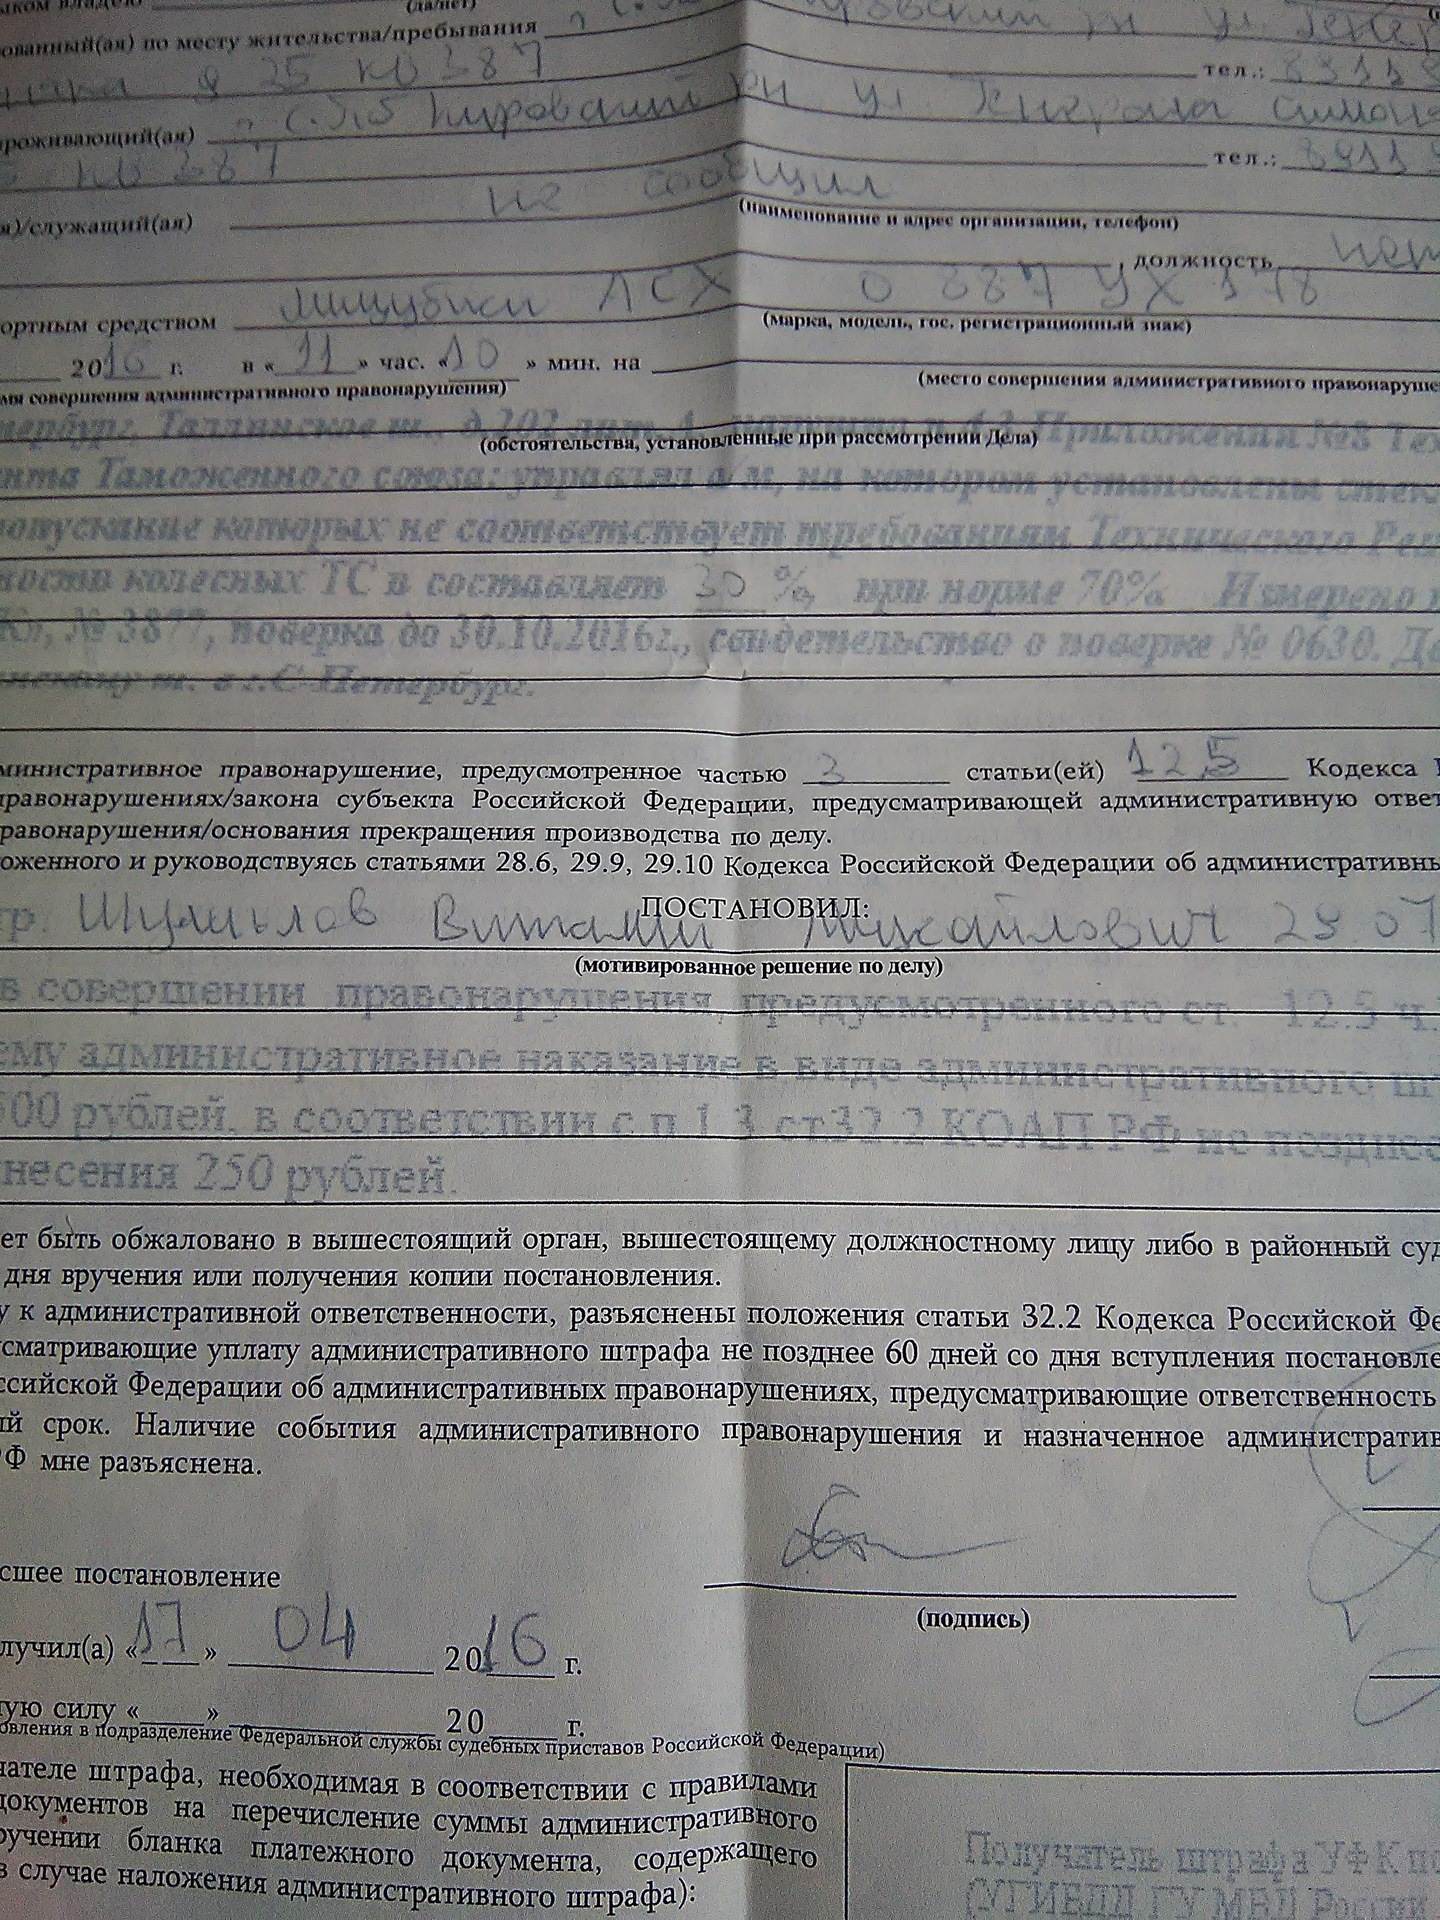 (да/нет)
ованный(ая) по месту жительства/пребывания
25 кв 387 тел.:
роживающий(ая) г. С.Пб Кировский рн ул. Генерала Симоня
кв 387 тел.:
не сообщил
я)/служащий(ая)
(наименование и адрес организации, телефон)
, должность нет
ортным средством мицубиси АСХ О 887 УХ 178
(марка, модель, гос. регистрационный знак)
2016 г. в «11» час. «10» мин. на
мя совершения административного правонарушения) (место совершения административного правонаруше
тербург, Таллинское ш., д.202 лит А, нарушил п.4.3 Приложения №8 Тех
(обстоятельства, установленные при рассмотрении Дела)
нта Таможенного союза: управлял а/м, на котором установлены стек
опускание которых не соответствует требованиям Технического Рег
ности колесных ТС и составляет 30 %, при норме 70% Измерено
№ 3877, поверка до 30.10.2016г., свидетельство о поверке № 0630. Де
ш. в г.С-Петербург.
министративное правонарушение, предусмотренное частью 3 статьи(ей) 12.5 Кодекса
правонарушениях/закона субъекта Российской Федерации, предусматривающей административную ответ
равонарушения/основания прекращения производства по делу.
оженного и руководствуясь статьями 28.6, 29.9, 29.10 Кодекса Российской Федерации об административны
ПОСТАНОВИЛ:
гр. Шумилов Виталий Михайлович 29 07
(мотивированное решение по делу)
в совершении правонарушения, предусмотренного ст. 12.5 ч.
ему административное наказание в виде административного ш
500 рублей, в соответствии с п.1.3 ст32.2 КОАП РФ не позднее
несения 250 рублей.
ет быть обжаловано в вышестоящий орган, вышестоящему должностному лицу либо в районный суд
дня вручения или получения копии постановления.
у к административной ответственности, разъяснены положения статьи 32.2 Кодекса Российской Фе
сматривающие уплату административного штрафа не позднее 60 дней со дня вступления постановле
ссийской Федерации об административных правонарушениях, предусматривающие ответственность
ый срок. Наличие события административного правонарушения и назначенное административ
РФ мне разъяснена.
сшее постановление
(подпись)
лучил(а) «17» 04 2016 г.
ную силу «___» 20___ г.
овления в подразделение Федеральной службы судебных приставов Российской Федерации)
чателе штрафа, необходимая в соответствии с правилами
документов на перечисление суммы административного
ручении бланка платежного документа, содержащего
в случае наложения административного штрафа):
Получатель штрафа УФК по
(УГИБДД ГУ МВД России